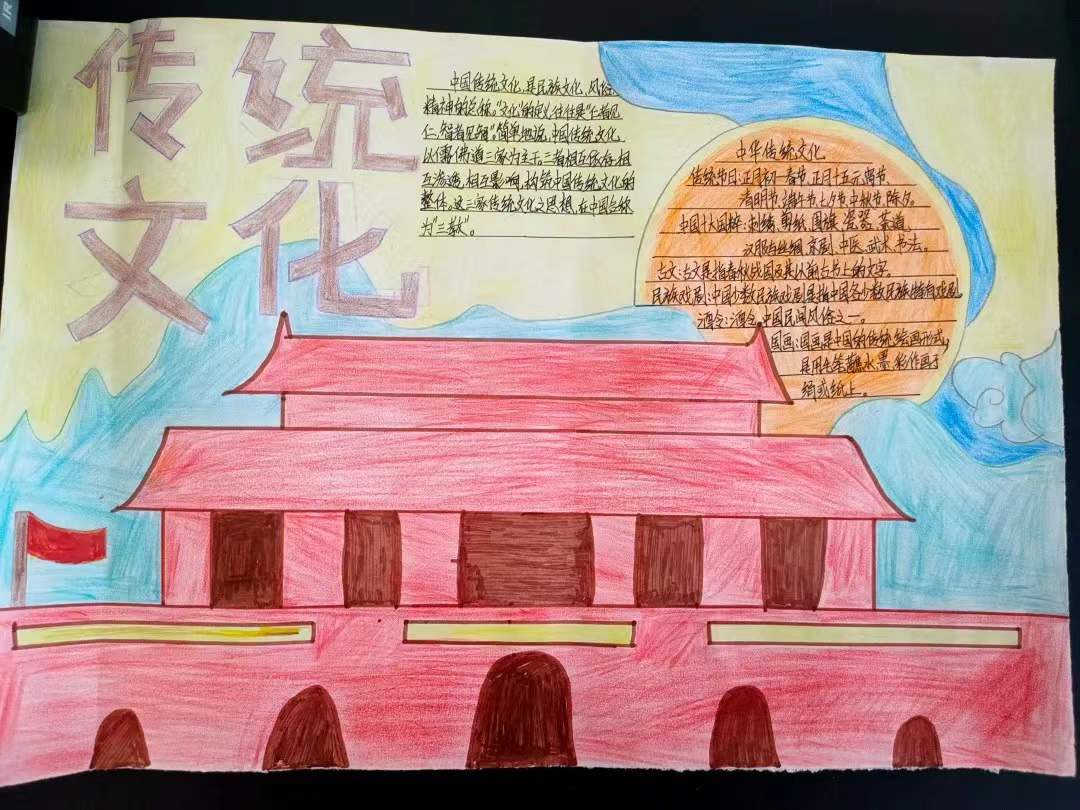 传统
文化
中国传统文化,是民族文化、风俗、
精神的总称。"文化"的定义往往是"仁者见
仁,智者见智"。简单地说,中国传统文化,
以儒、佛、道三家为主干,三者相互依存,相
互渗透,相互影响,构筑中国传统文化的
整体。这三家传统文化之思想,在中国合称
为"三教"。
中华传统文化
传统节日:正月初一春节,正月十五元宵节、
清明节、端午节、七夕节、中秋节、除夕。
中国十大国粹:刺绣、剪纸、围棋、瓷器、茶道、
汉服与丝绸、京剧、中医、武术、书法。
古文:古文是指春秋战国及其以前古书上的文字。
民族戏剧:中国少数民族戏剧是指中国各少数民族特有戏剧。
酒令:酒令,中国民间风俗之一。
国画:国画是中国的传统绘画形式,
是用毛笔蘸水、墨、彩作画于
绢或纸上。